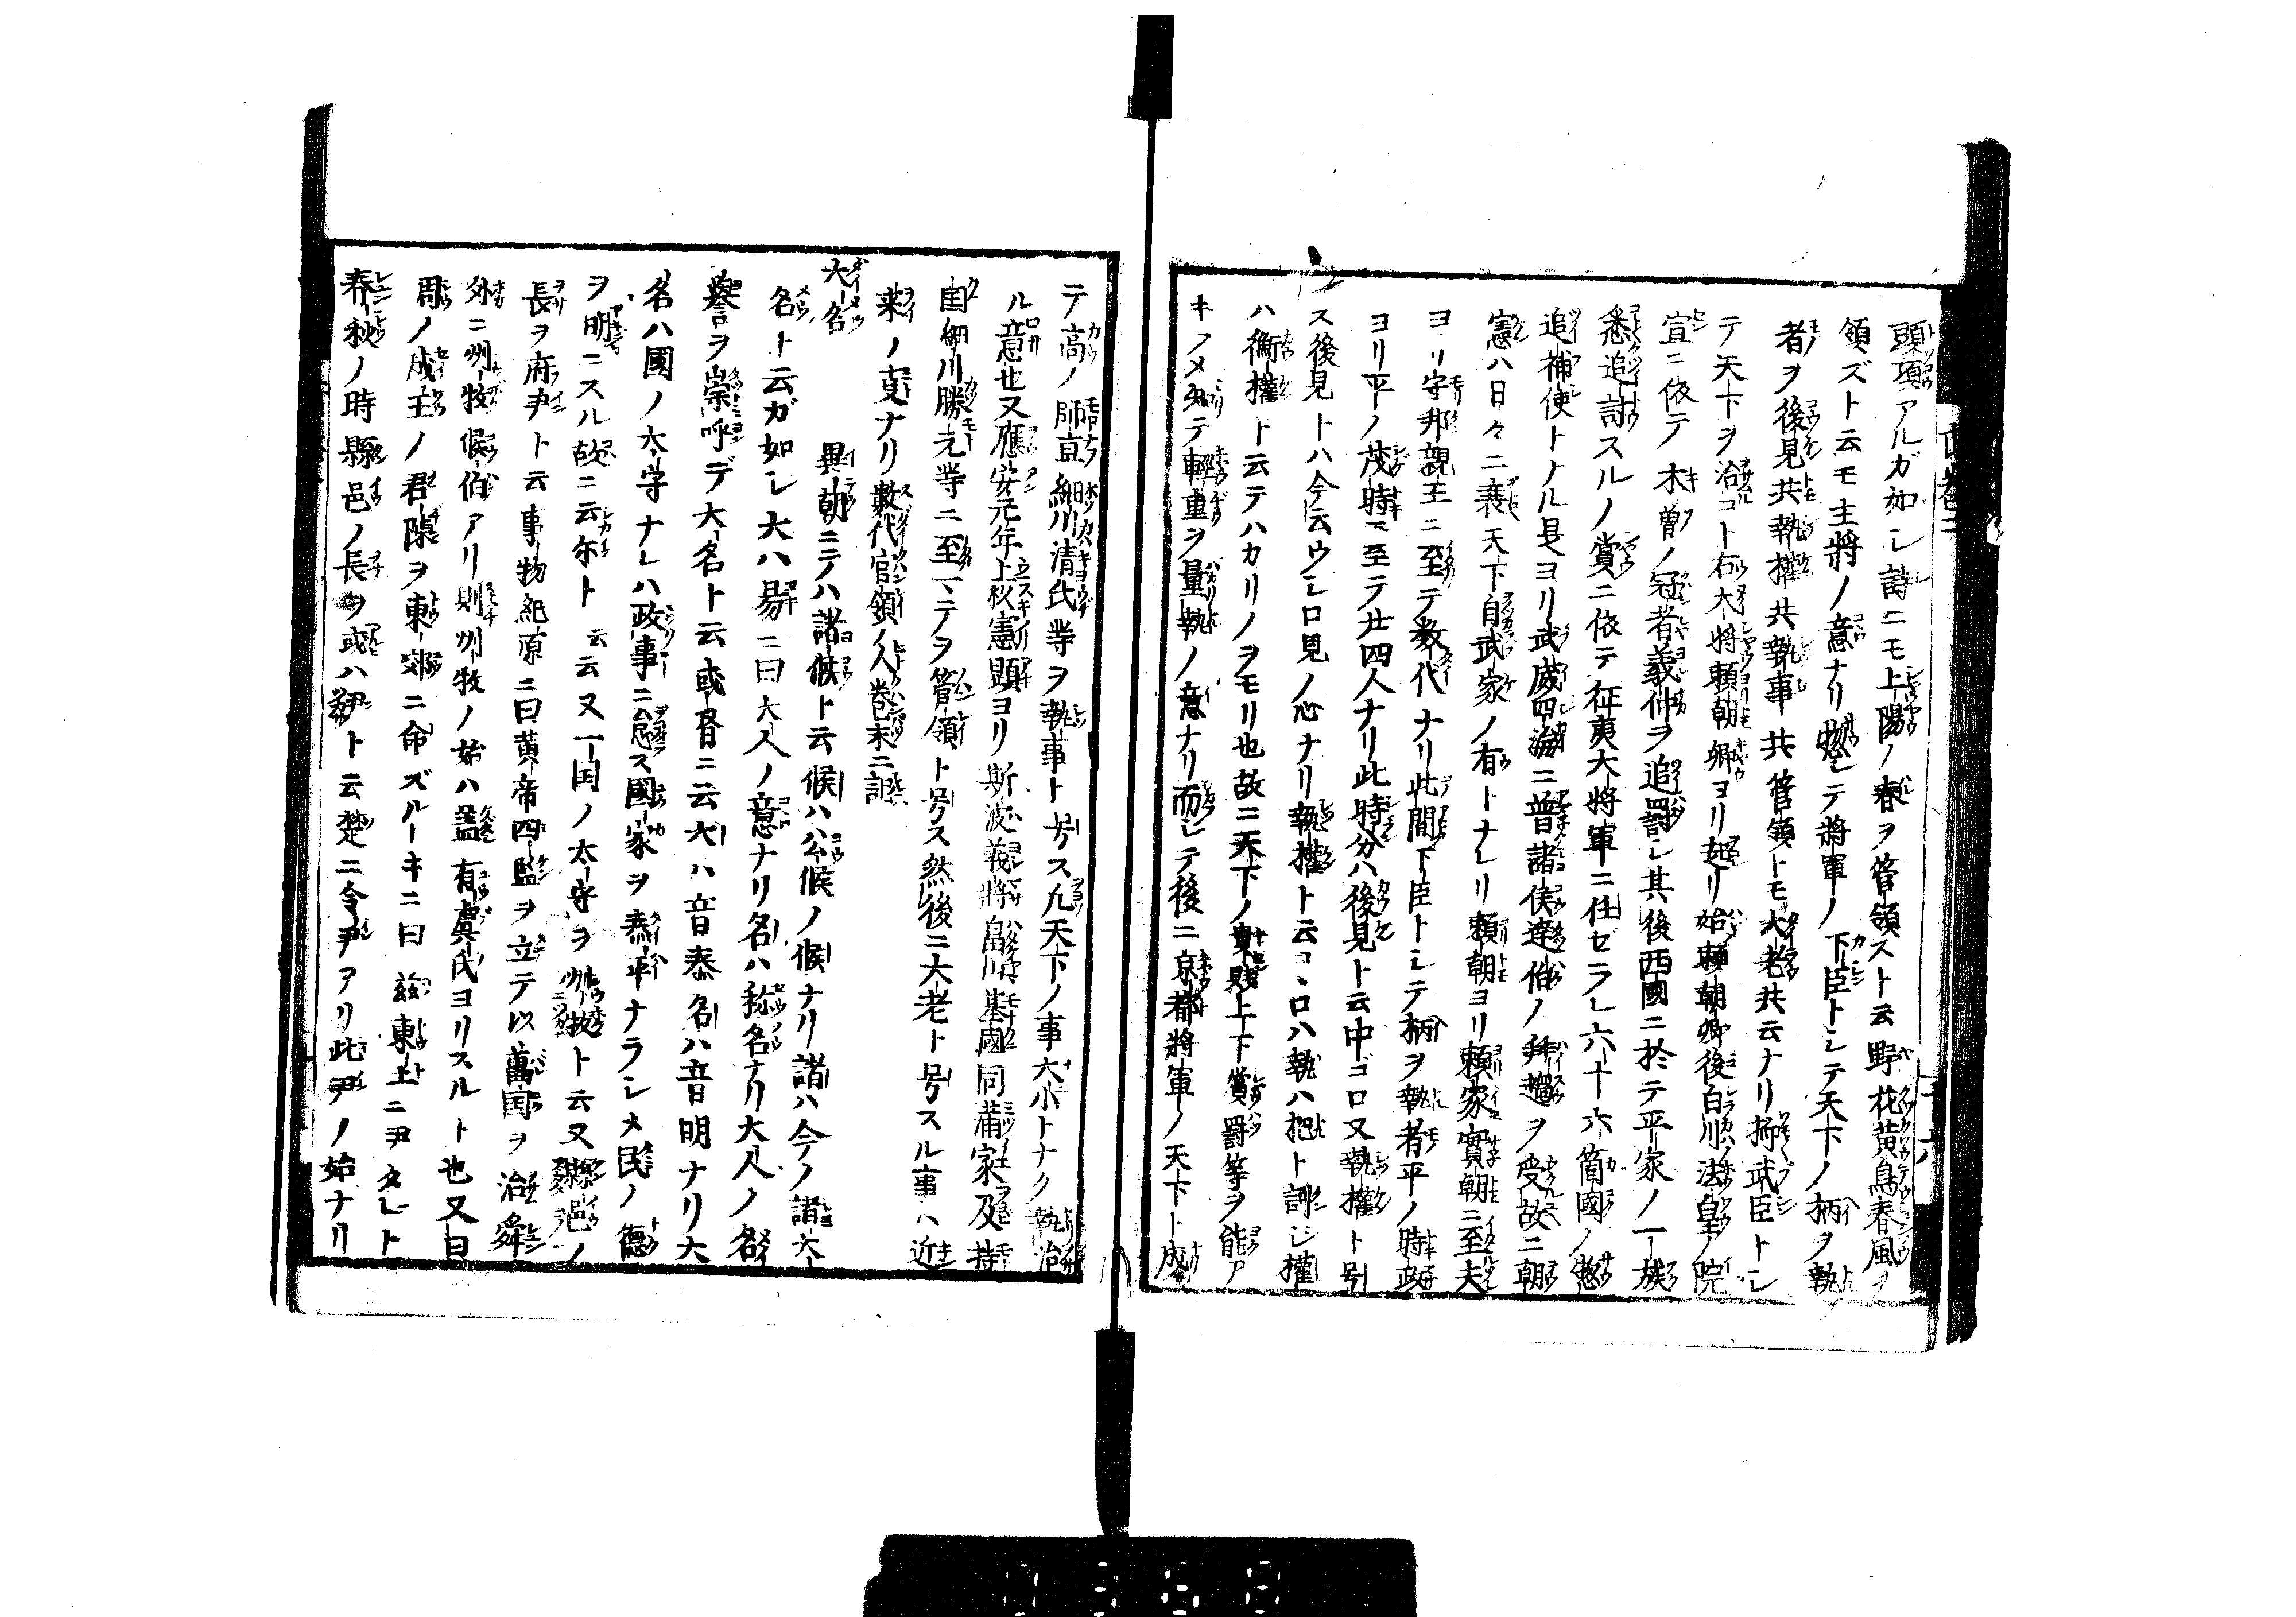 頭項アルガ如シ詩ニモ上陽ノ春ヲ管領スト云野花黄鳥春風ヲ
領ズト云モ主將ノ意ナリ惣シテ將軍ノ下臣トシテ天下ノ柄ヲ執
者ヲ後見共執權共執事共管領トモ大老共云ナリ抑武臣トシ
テ天下ヲ治コト右大將頼朝卿ヨリ起リ始頼朝卿後白川法皇ノ院
宣ニ依テ木曽ノ冠者義仲ヲ追罰シ其後西國ニ於テ平家ノ一族
悉追討スルノ賞ニ依テ征夷大將軍ニ仕セラレ六十六箇國ノ惣
追補使トナル是ヨリ武威四海ニ普諸侯達伯ノ拜趨ヲ受故ニ朝
憲ハ日々ニ衰天下自武家ノ有トナレリ頼朝ヨリ頼家實朝ニ至夫
ヨリ守邦親王ニ至テ数代ナリ此間下臣トシテ柄ヲ執者平ノ時政
ヨリ平ノ茂時ニ至テ廿四人ナリ此時分ハ後見ト云中ゴロ又執權ト号
ス後見トハ今云ウシロ見ノ心ナリ執權ト云コヽロハ執ハ把ト訓ジ權
ハ衡權ト云テハカリノヲモリ也故ニ天下ノ貴賤上下賞罸等ヲ能ア
キラメ知テ輕重ヲ量執ノ意ナリ而シテ後ニ京都將軍ノ天下ト成
テ高ノ師直細川清氏等ヲ執事ト号ス凡天下ノ事大小トナク執治
ル意也又應安元年上杉憲顕ヨリ斯波義將畠山基國同蒲家及持
国細川勝元等ニ至マテヲ管領ト号ス然後ニ大老ト号スル事ハ近
来ノ叓ナリ数代官領ノ人巻末ニ記
大名 異朝ニテハ諸候ト云候ハ公候ノ候ナリ諸ハ今ノ諸大
名ト云ガ如シ大ハ易ニ曰大人ノ意ナリ名ハ称名ナリ大人ノ名
誉ヲ崇呼デ大名ト云或書ニ云大ハ音泰名ハ音明ナリ大
名ハ國ノ太守ナレハ政事ニ怠ス國家ヲ泰平ナラシメ民ノ德
ヲ明ニスル故ニ云尓ト云云又一国ノ太守ヲ州牧ト云又縣邑ノ
長ヲ府尹ト云事物紀原ニ曰黄帝四監ヲ立テ以萬国ヲ治舜
外ニ州牧候伯アリ則州牧ノ始ハ蓋有虞氏ヨリスルト也又曰
周ノ成王ノ君陳ヲ東郊ニ命ズルキニ曰茲東上ニ尹タレト
春秋ノ時縣邑ノ長ヲ或ハ尹ト云楚ニ令尹アリ此尹ノ始ナリ